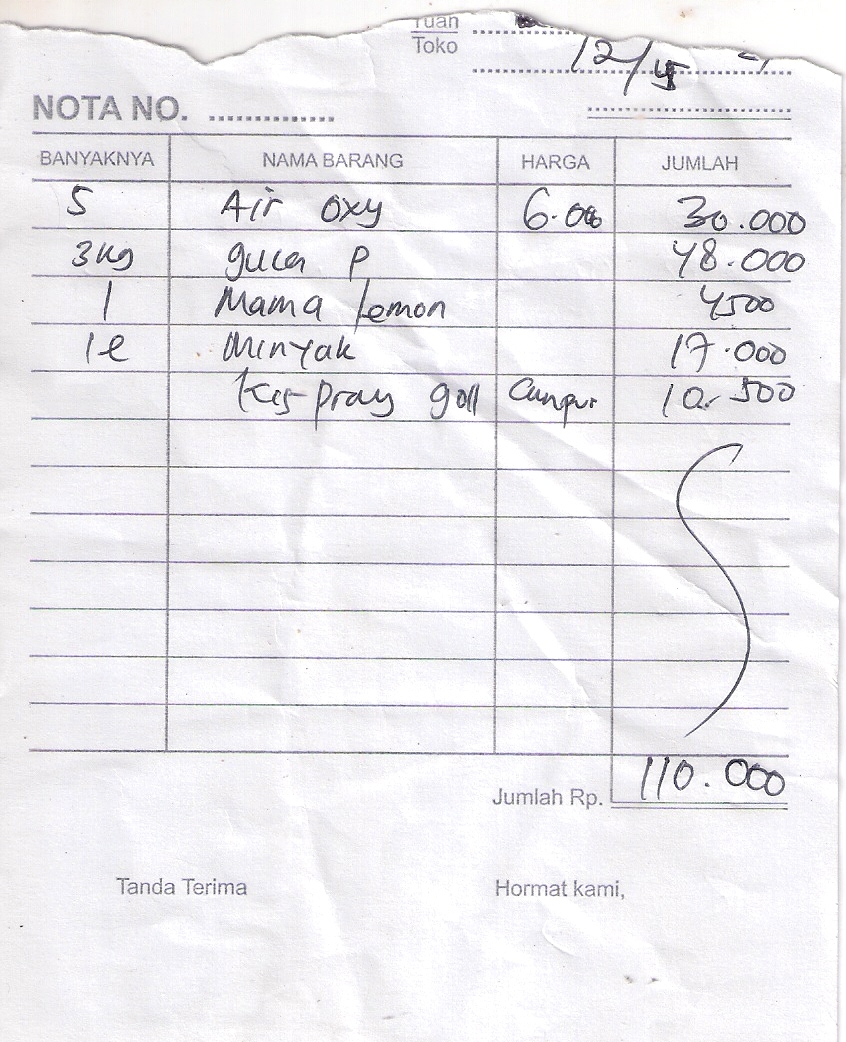 Tuan
Toko
12/5
NOTA NO. ..............
BANYAKNYA NAMA BARANG HARGA JUMLAH
5 Air oxy 6.000 30.000
3kg gula P 48.000
1 Mama lemon 4500
1l Minyak 17.000
10.500
110.000
Jumlah Rp.
Tanda Terima Hormat kami,